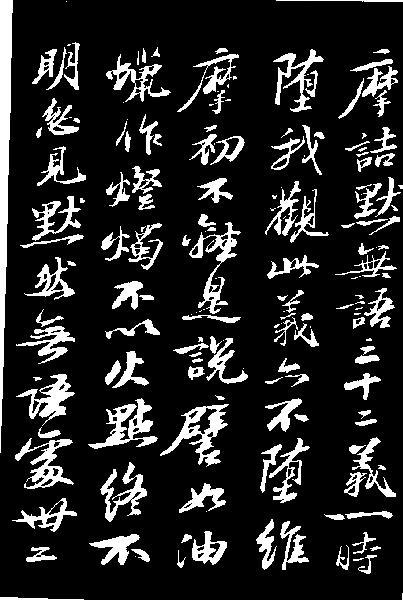 摩詰默無語三十二義一時
堕我觀此義亦不堕維
摩初不離是說譬如油
蠟作燈燭不以火點終不
明忽見默然無語處卅二